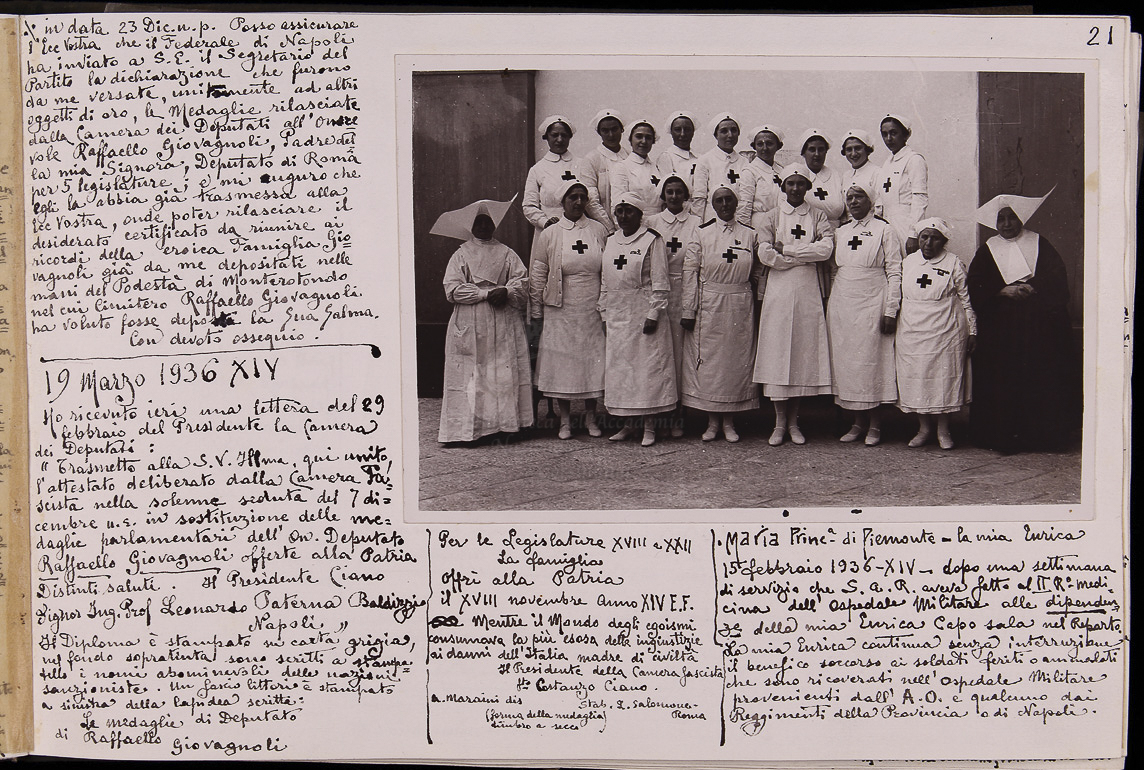 21
in data 23 Dic. u. p. Posso assicurare
l'Ecc Vostra che il Federale di Napoli
ha inviato a S. E. il Segretario del
Partito la dichiarazione che furono
da me versate, unitamente ad altri
oggetti di oro, le Medaglie rilasciate
dalla Camera dei Deputati all'Onore
vole Raffaello Giovagnoli, Padre del
la mia Signora, Deputato di Roma
per 5 legislature, e mi auguro che
egli la abbia già trasmessa alla
Ecc Vostra, onde poter rilasciare il
desiderato certificato da riunire ai
ricordi della eroica Famiglia Gio=
vagnoli già da me depositati nelle
mani del Podestà di Monterotondo
nel cui Cimitero Raffaello Giovagnoli
ha voluto fosse deposta la Sua Salma.
Con devoto ossequio.
19 Marzo 1936 XIV
Ho ricevuto ieri una lettera del 29
febbraio del Presidente la Camera
dei Deputati:
"Trasmetto alla S. V. Ill.ma, qui unito,
l'attestato deliberato dalla Camera Fa=
scista nella solenne seduta del 7 di=
cembre u.s. in sostituzione delle me=
daglie parlamentari dell'On. Deputato
Raffaello Giovagnoli offerte alla Patria
Distinti saluti. Il Presidente Ciano
Signor Ing. Prof Leonardo Paterna Baldizzi
Napoli "
Il Diploma è stampato su carta grigia,
nel fondo sopratinta sono scritti a stampa=
tello i nomi abominevoli delle nazioni
sanzioniste. Un fascio littorio è stampato
a sinistra della lapidea scritta:
Le medaglie di Deputato
di Raffaello Giovagnoli
Per le Legislature XVIII e XXII
La famiglia
offrì alla Patria
il XVIII novembre Anno XIV E.F.
Mentre il Mondo degli egoismi
consumava la più esosa delle ingiustizie
ai danni dell'Italia madre di civiltà
Il Presidente della Camera fascista
Costanzo Ciano.
A. Maraini dis Stab. L. Salomone.
(forma della medaglia) Roma
timbro a secco
Maria Princ.a di Piemonte – la mia Enrica
15 febbraio 1936-XIV – dopo una settimana
di servizio che S. A. R. aveva fatto al II Rº medi=
cina dell'Ospedale Militare alle dipenden=
ze della mia Enrica Capo sala nel Reparto.
La mia Enrica continua senza interruzione
il benefico soccorso ai soldati feriti o ammalati
che sono ricoverati nell'Ospedale Militare
provenienti dall'A.O. e qualcuno dai
Reggimenti della Provincia o di Napoli.